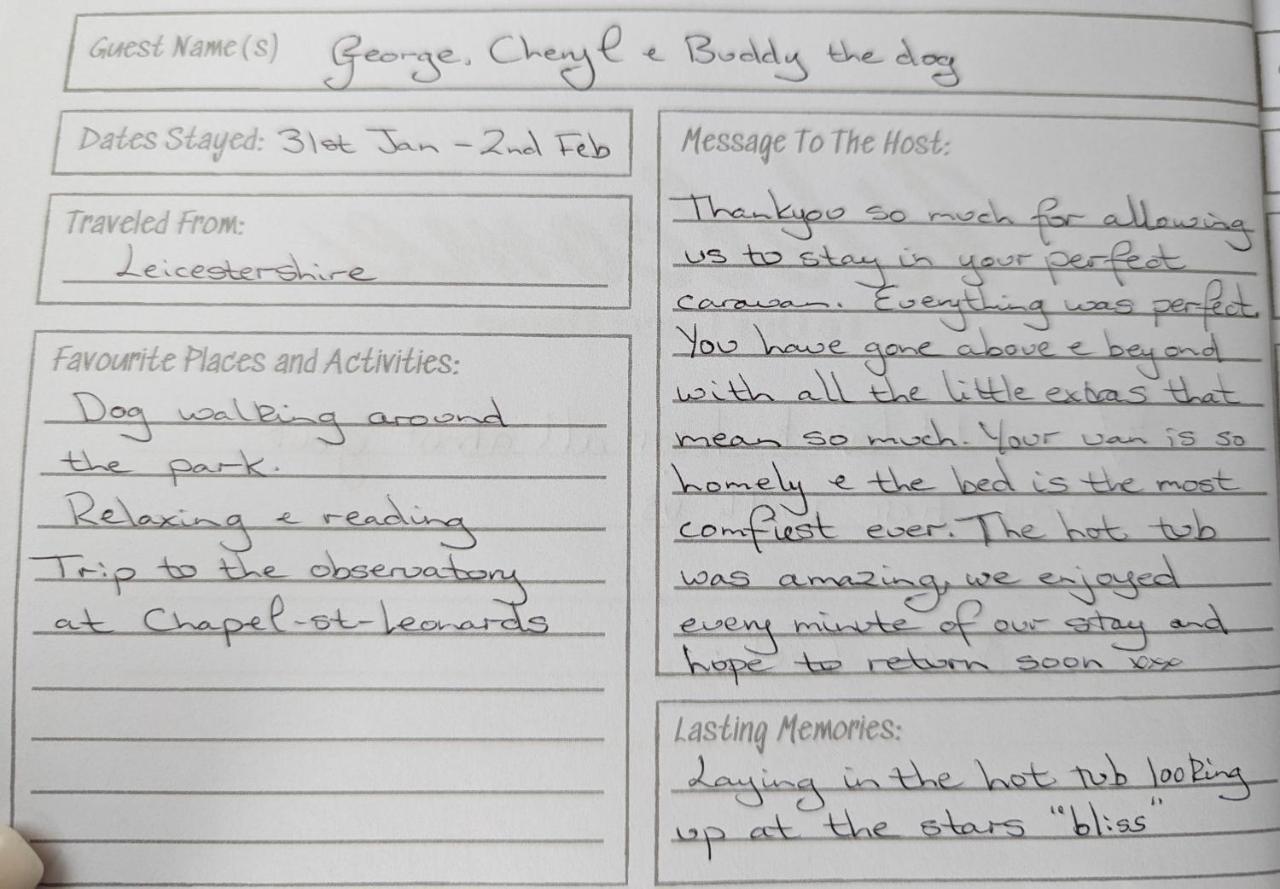 Guest Name(s) George, Cheryl & Buddy the dog
Dates Stayed: 31st Jan - 2nd Feb
Traveled From:
Leicestershire
Favourite Places and Activities:
Dog walking around
the park.
Relaxing & reading
Trip to the observatory
at Chapel-st-leonards
Message To The Host:
Thankyou so much for allowing
us to stay in your perfect
caravan. Everything was perfect.
You have gone above & beyond
with all the little extras that
mean so much. Your van is so
homely & the bed is the most
comfiest ever. The hot tub
was amazing, we enjoyed
every minute of our stay and
hope to return soon xxx
Lasting Memories:
Laying in the hot tub looking
up at the stars "bliss"